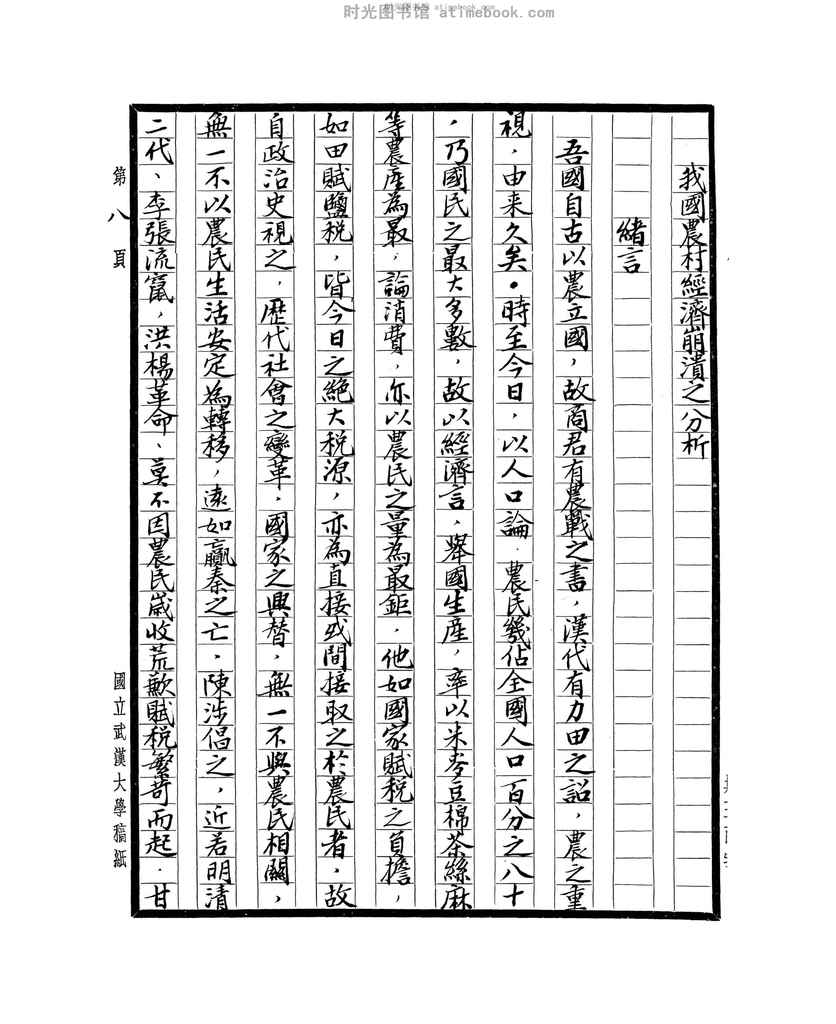 时光图书馆 atimebook.com
我國農村經濟崩潰之分析
緒言
吾國自古以農立國，故商君有農戰之書，漢代有力田之詔，農之重
視，由来久矣。時至今日，以人口論，農民幾佔全國人口百分之八十
，乃國民之最大多數，故以經濟言，舉國生産，率以米麥豆棉茶絲麻
等農産為最，論消費，亦以農民之量為最鉅，他如國家賦税之負擔，
如田賦鹽税，皆今日之絶大税源，亦為直接或間接取之於農民者，故
自政治史視之，歷代社會之變革，國家之興替，無一不與農民相關，
無一不以農民生活安定為轉移，遠如嬴秦之亡，陳涉倡之，近若明清
二代、李張流竄，洪楊革命、莫不因農民嵗收荒歉賦税繁苛而起，甘
第八頁
國立武漢大學稿紙